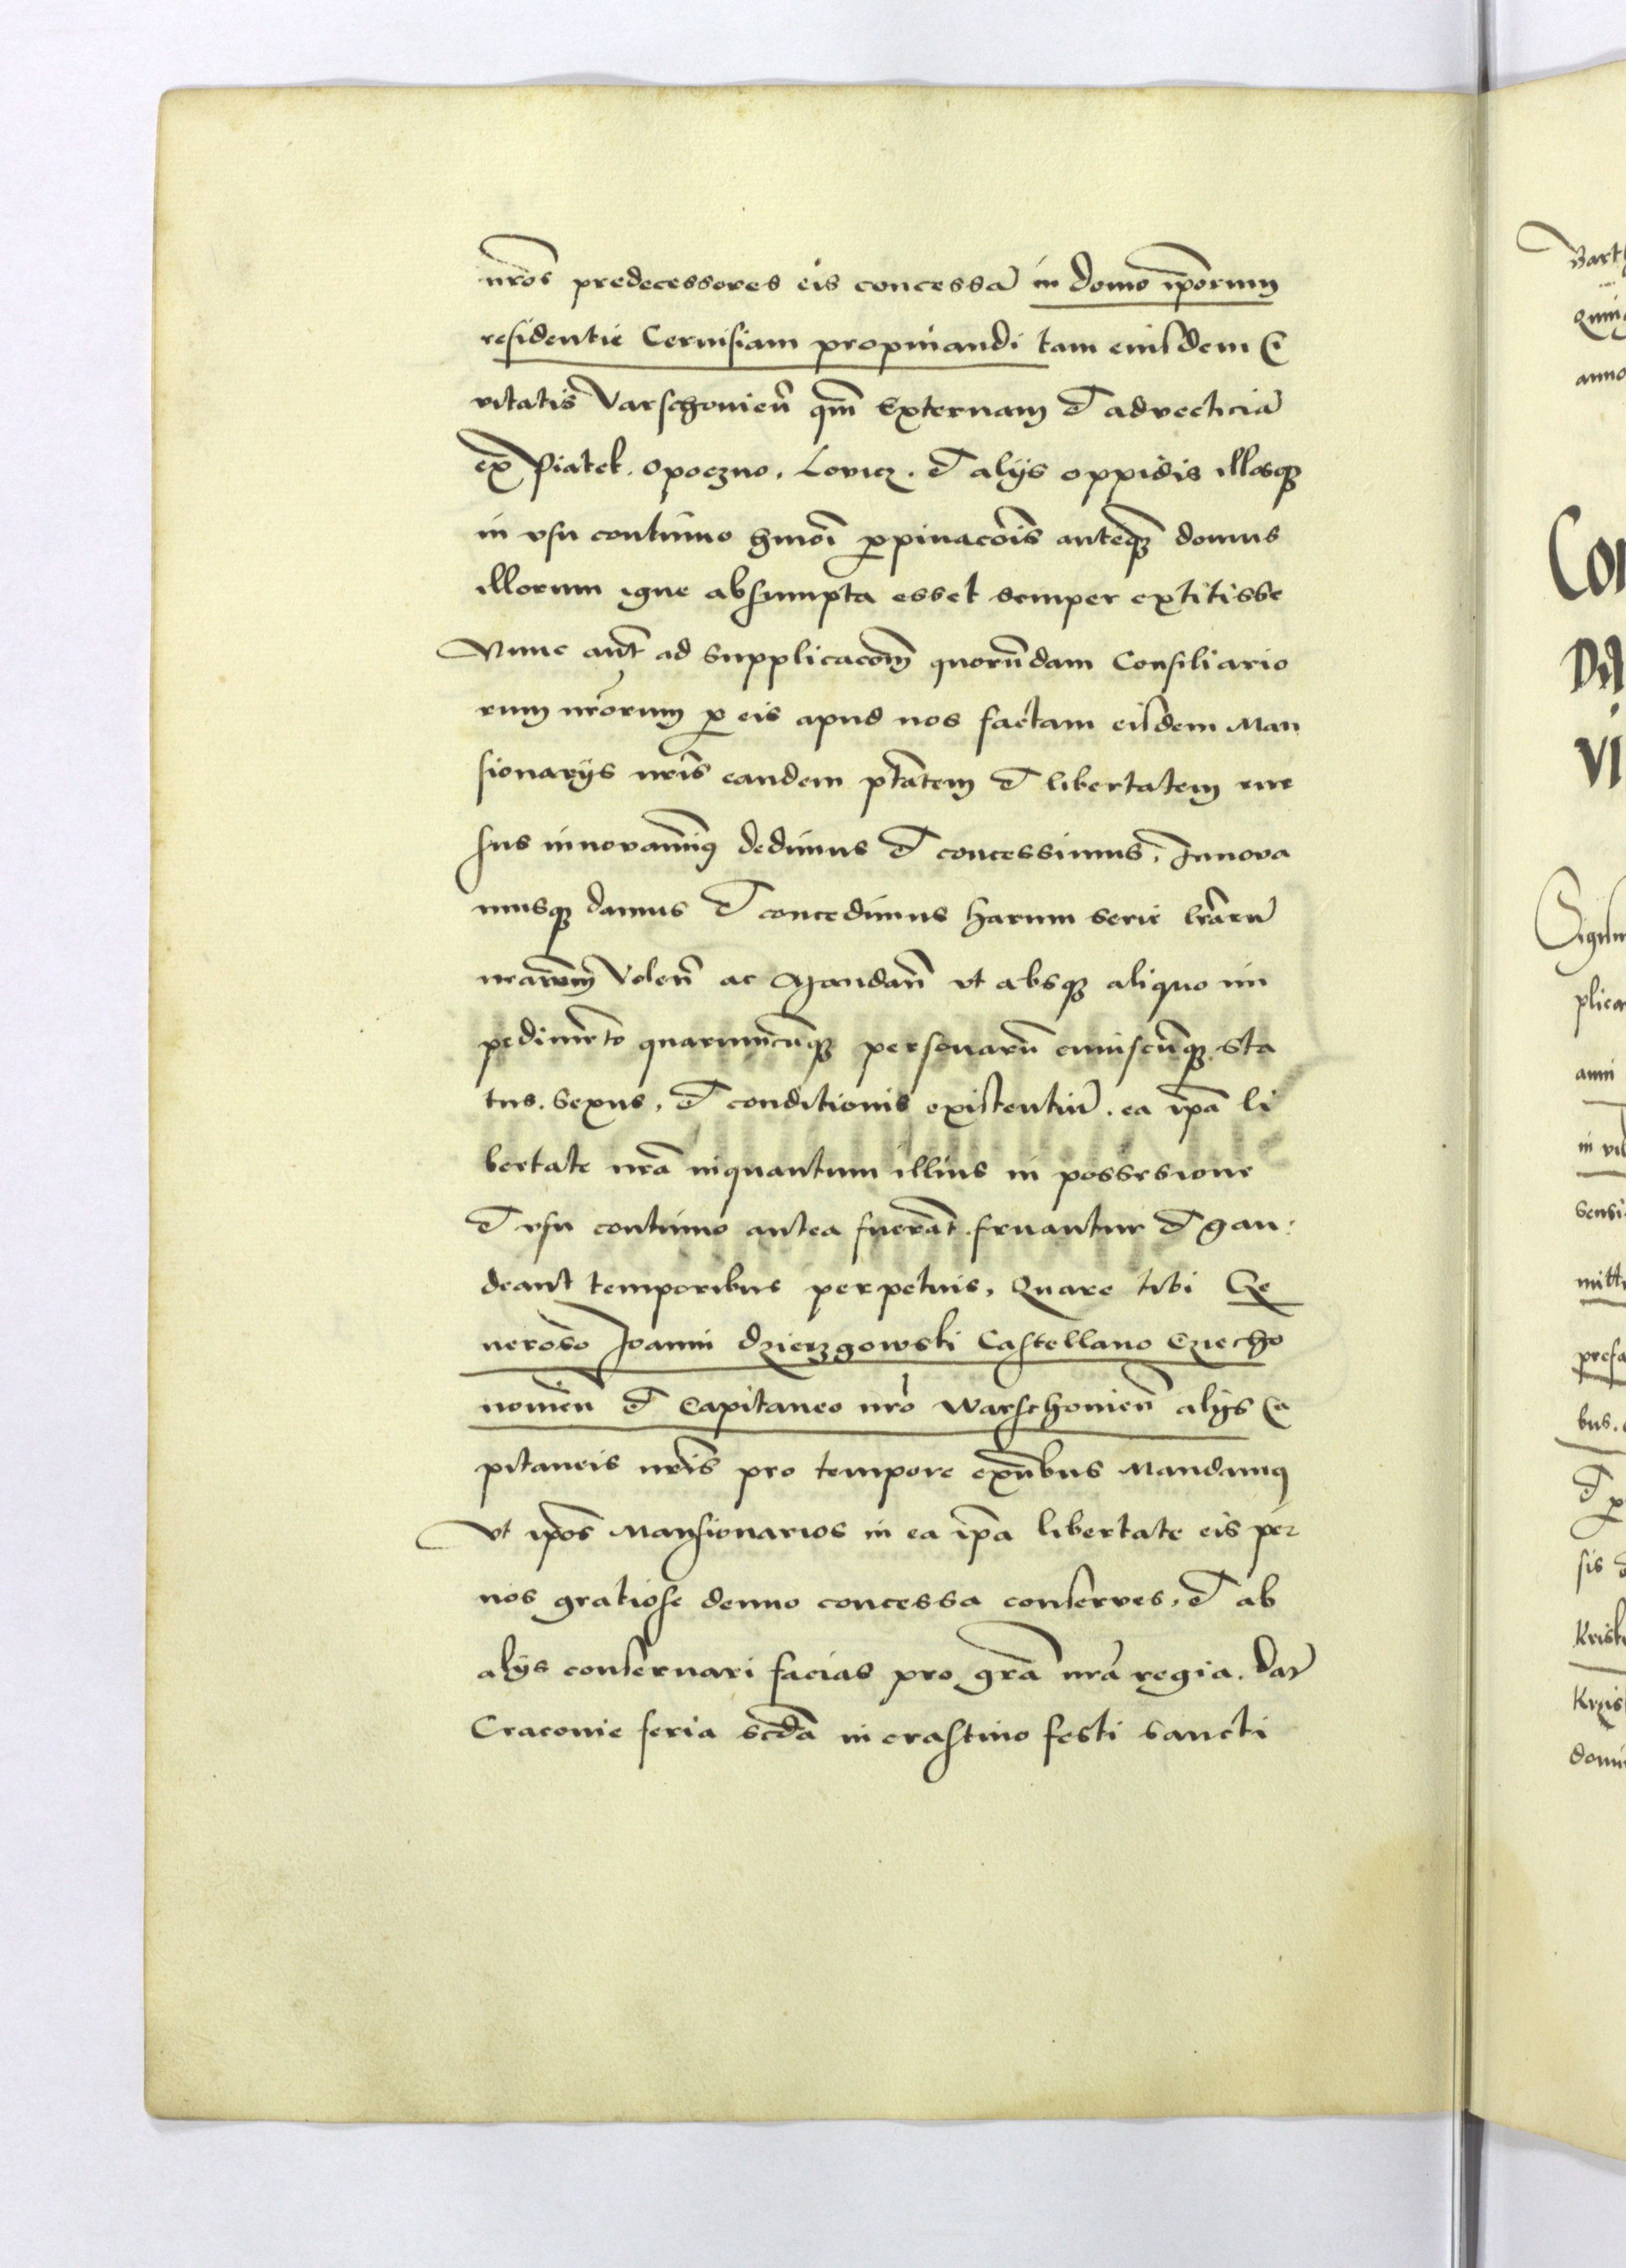 nros predecessores eis concessã in domo ipõrum
residentie Ceruisiam propinandi tam eiusdem Ci
vitatis Varschouień qm̃ Externam et advecticiã
ex Piatek. Opoczno. Lovicz. et alijs oppidis illosq3
in vsu continuo hmõi ꝓpinacõis anteq3 domus
illorum igne absumpta esset semper extitisse
Nunc aut̃ ad supplicacõm quorũdam Consiliario
rum nrõrum ꝓ eis apud nos factam eisdem Man
sionarijs nrĩs eandem ptãtem et libertatem rur
sus innovauimus dedimus et concessimus. Innova
musq3 damus et concedimus harum serie lrãrũ
nrãrum Voleñ ac Mandañ vt absq3 aliquo im
pedimẽto quarumcũq3 personarũ cuiuscũq3 sta
tus. Sexus. et conditionis existentiũ. ea ipã li
bertate nrã inquantum illius in possessione
et vsu continuo antea fuerãt. fruantur et gau:
deant temporibus perpetuis. Quare tibi Ge
neroso Joanni dzierzgowski Castellano Cziecho
nouień et Capitaneo nrõ Warschouień alijs Ca
pitaneis nrĩs pro tempore exñtibus Mandamus
Vt ipõs Mansionarios in ea ipã libertate eis per
nos gratiose denuo concessa conserves. et ab
alijs conseruari facias pro grã nrã regia. Dat̃
Craconie feria scdã in crastino festi Sancti
Co
Di
VI
plica
anni
in vil
sensi
mitt
prefa
bus.
et ꝑ
sis
Krist
Krzis
domi
anno
Bart